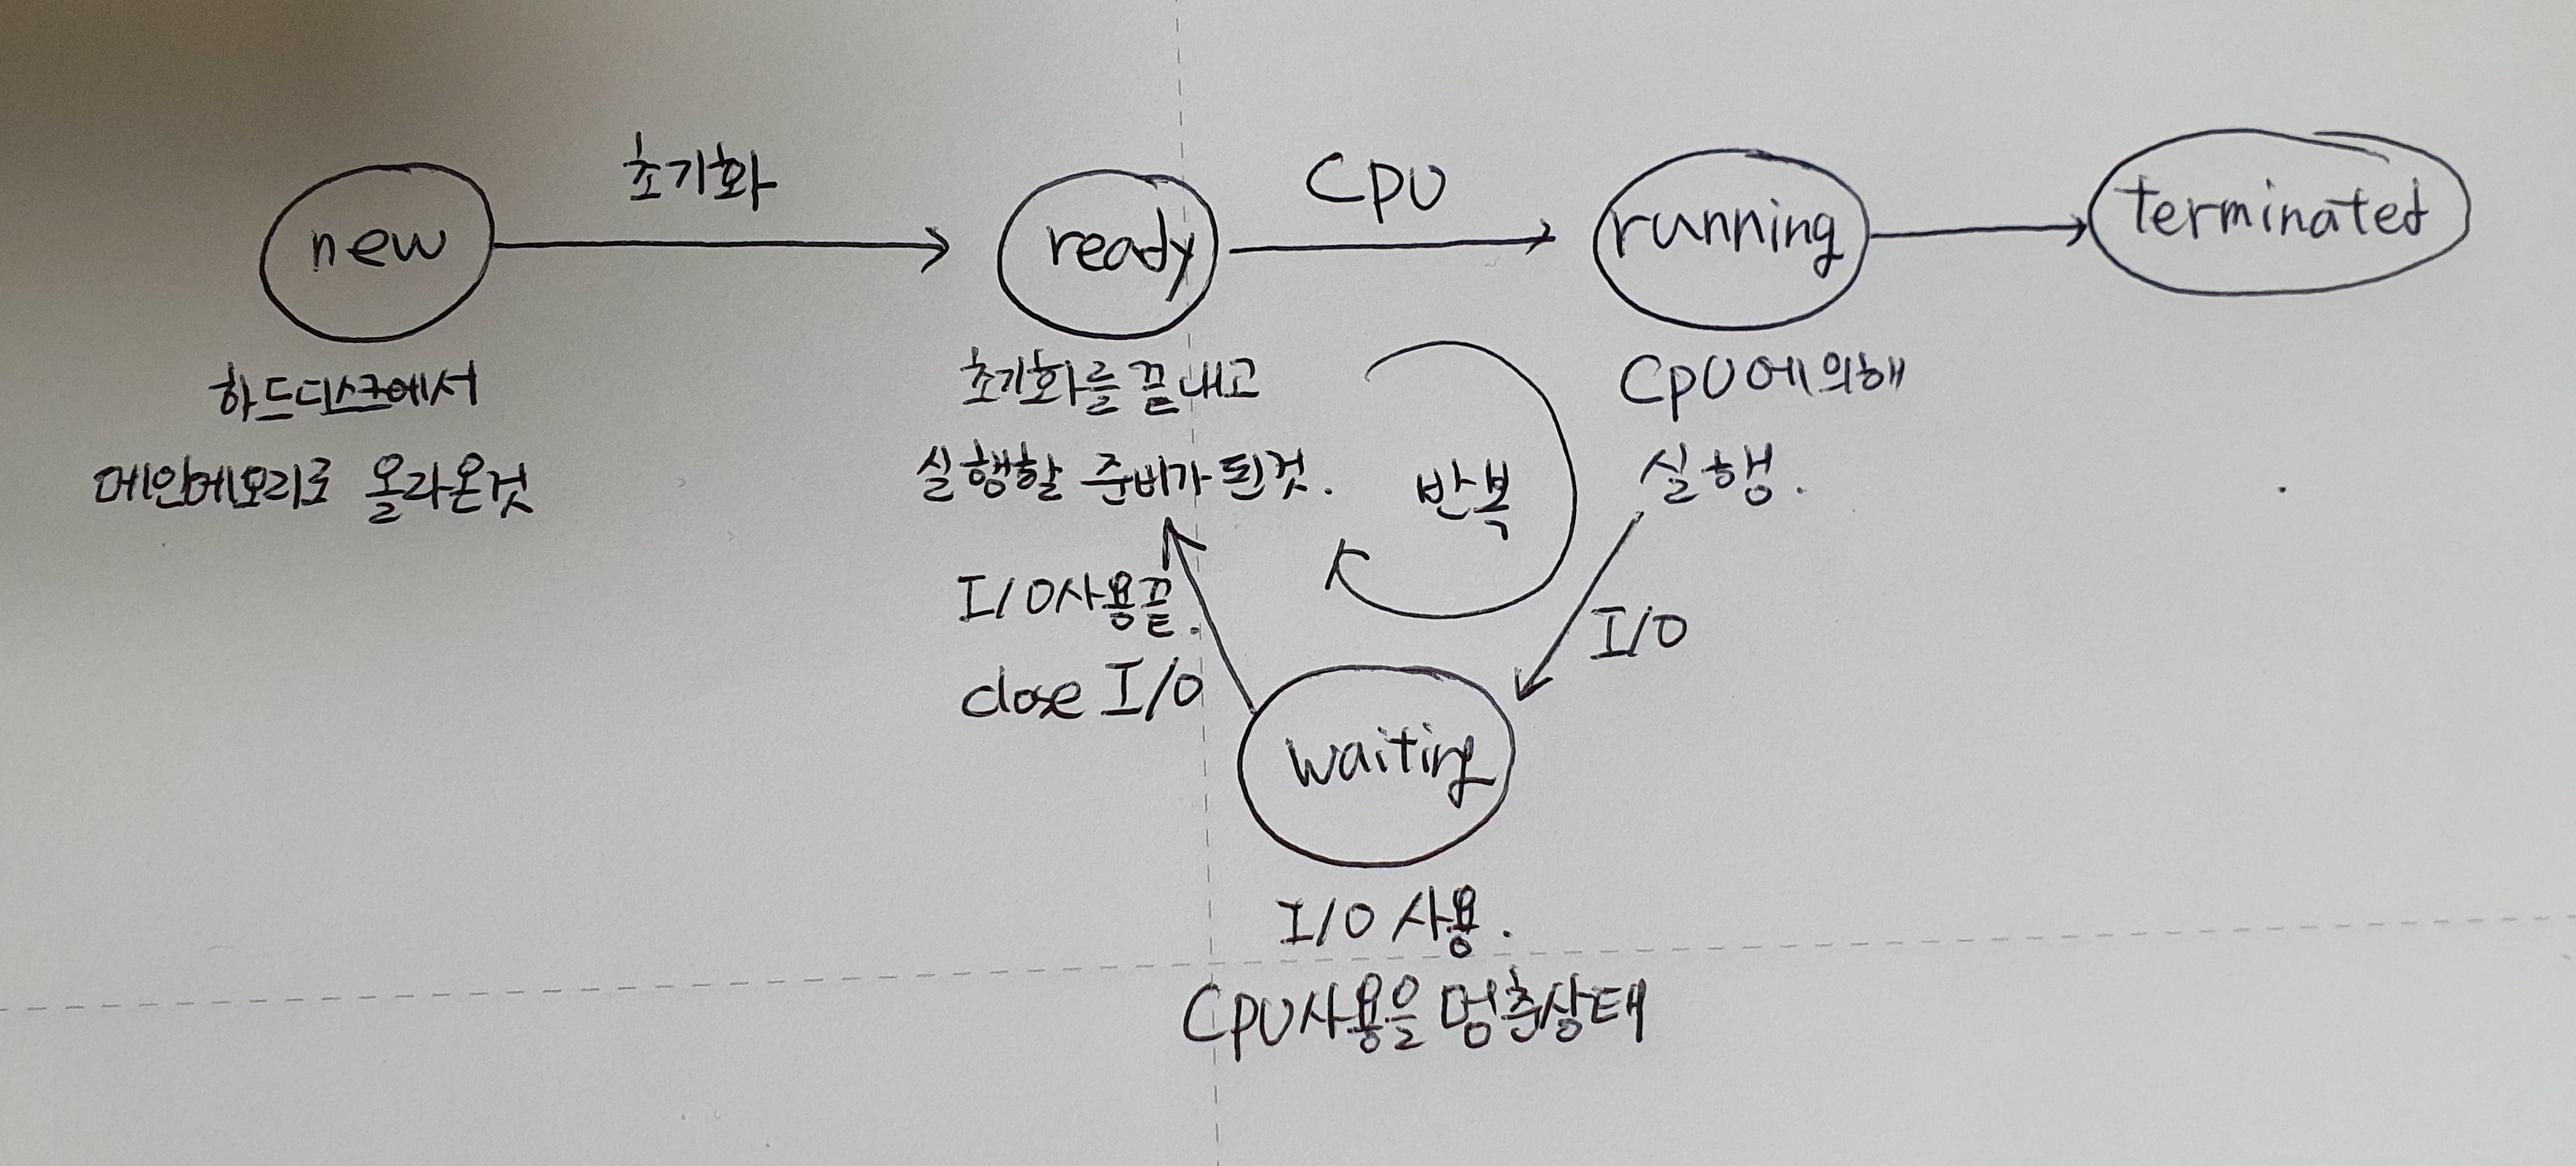 초기화
CPU
new
ready
running
terminated
하드디스크에서
메인메모리로 올라온것
초기화를 끝내고
실행할 준비가 된것.
반복
CPU에 의해
실행.
I/O사용끝.
close I/O
I/O
waiting
I/O 사용.
CPU사용을 멈춘상태